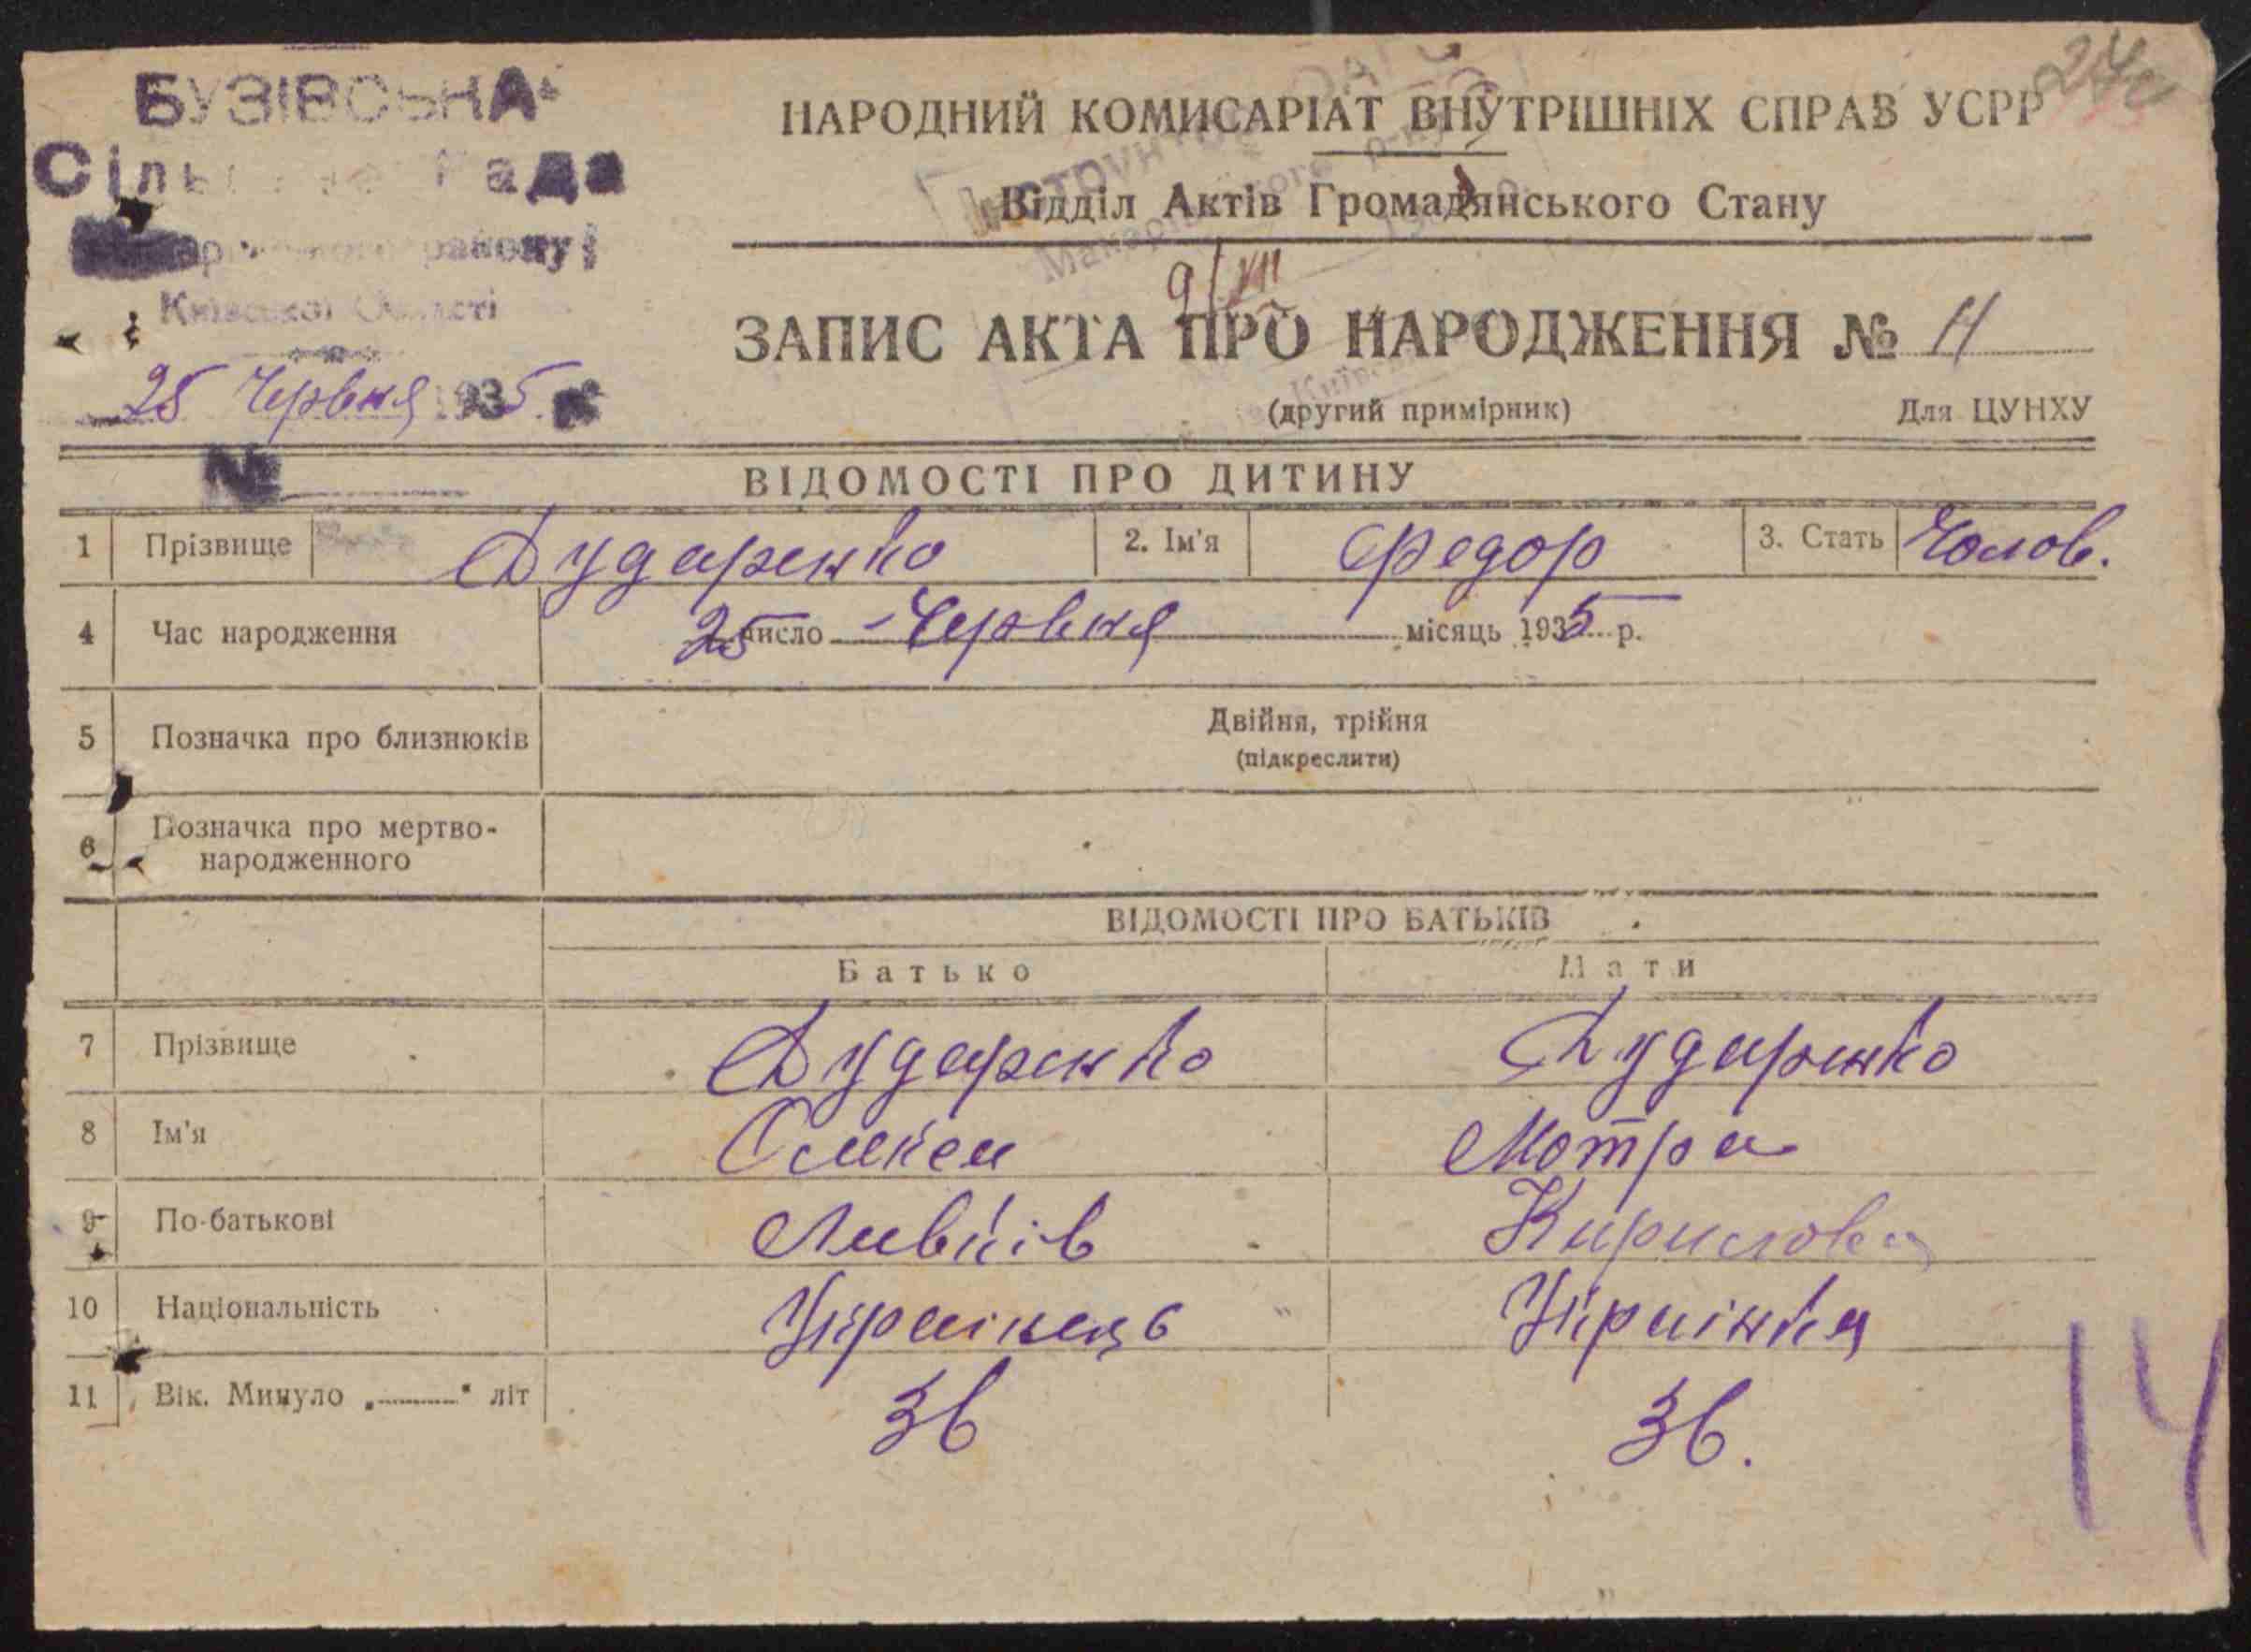 БУЗІВСЬКА
Сільська Рада
району
Київської Області
25 Червня 1935
№
НАРОДНИЙ КОМИСАРІАТ ВНУТРІШНІХ СПРАВ УСРР
Відділ Актів Громадянського Стану
9/VII
ЗАПИС АКТА ПРО НАРОДЖЕННЯ № 11
(другий примірник) Для ЦУНХУ
ВІДОМОСТІ ПРО ДИТИНУ
1 Прізвище Дударенко 2. Ім'я Федор 3. Стать Чолов.
4 Час народження 25 число Червня місяць 1935 р.
5 Позначка про близнюків Двійня, трійня
(підкреслити)
6 Позначка про мертво-
народженного
ВІДОМОСТІ ПРО БАТЬКІВ
Батько Мати
7 Прізвище Дударенко Дударенко
8 Ім'я Мотря
9 По-батькові Кирилова
10 Національність Українець Українка
11 Вік. Минуло „ “ літ 36 36.
14